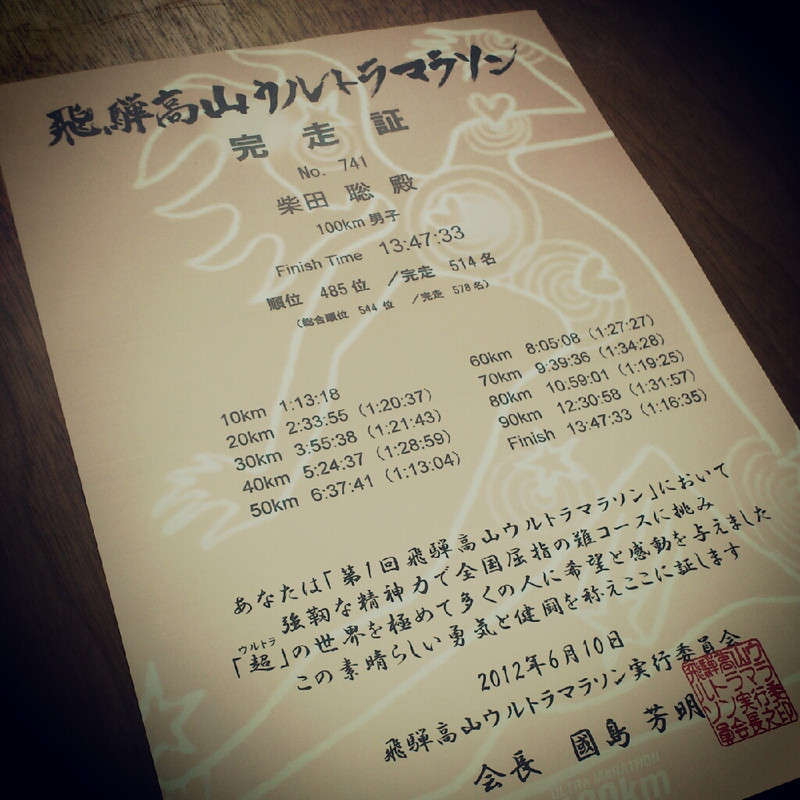 飛騨高山ウルトラマラソン
完走証
No. 741
柴田 聡 殿
100km 男子
Finish Time 13:47:33
順位 485位 /完走 514名
(総合順位 544位 /完走 578名)
10km 1:13:18
20km 2:33:55 (1:20:37)
30km 3:55:38 (1:21:43)
40km 5:24:37 (1:28:59)
50km 6:37:41 (1:13:04)
60km 8:05:08 (1:27:27)
70km 9:39:36 (1:34:28)
80km 10:59:01 (1:19:25)
90km 12:30:58 (1:31:57)
Finish 13:47:33 (1:16:35)
あなたは「第1回 飛騨高山ウルトラマラソン」において
強靭な精神力で全国屈指の難コースに挑み
ウルトラ
「超」の世界を極めて多くの人に希望と感動を与えました
この素晴らしい勇気と健闘を称えここに証します
2012年6月10日
飛騨高山ウルトラマラソン実行委員会
会長 國島 芳明
飛騨高山ウルトラマラソン実行委員会会長之印
ULTRA MARATHON
00km